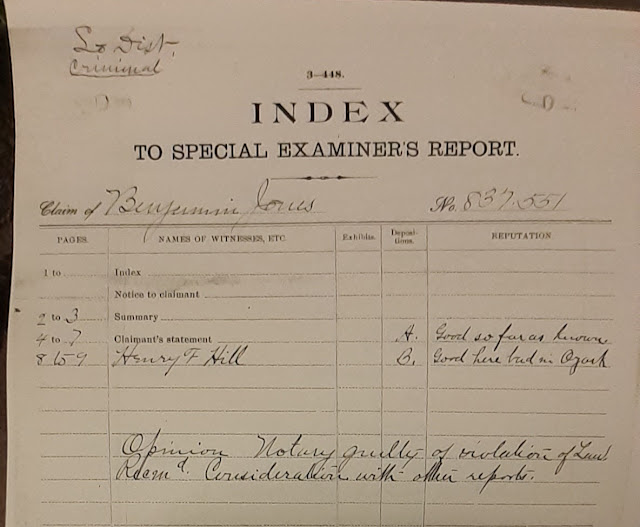 So Dist.
Criminal
3—448.
INDEX
TO SPECIAL EXAMINER'S REPORT.
Claim of Benjamin Jones No. 837.551
PAGES. NAMES OF WITNESSES, ETC. Exhibits. Deposi-tions. REPUTATION
1 to Index
Notice to claimant
2 to 3 Summary
4 to 7 Claimant's statement A. Good so far as known
8 to 9 Henry F Hill B. Good here bad in Ozark
Opinion Notary guilty of violation of Law
Recmd. Consideration with other reports.